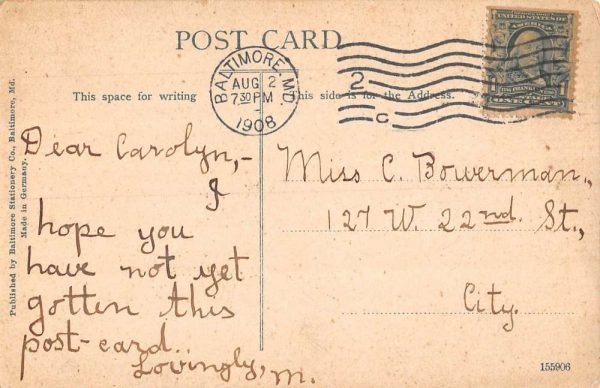 POST CARD
BALTIMORE, MD.
AUG 2
7 30 PM
1908
2
C
UNITED STATES OF
AMERICA
ONE CENT
This space for writing
This side is for the Address.
Published by Baltimore Stationery Co., Baltimore, Md.
Made in Germany.
Dear Carolyn,-
I
hope you
have not yet
gotten this
post-card.
Lovingly, M.
Miss C. Bowerman.,
127 W. 22nd. St.,
City.
155906